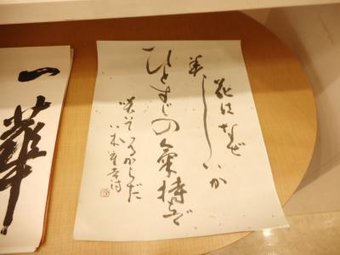 花はなぜ
美しいか
ひとすじの気持で
咲いているからだ
一華